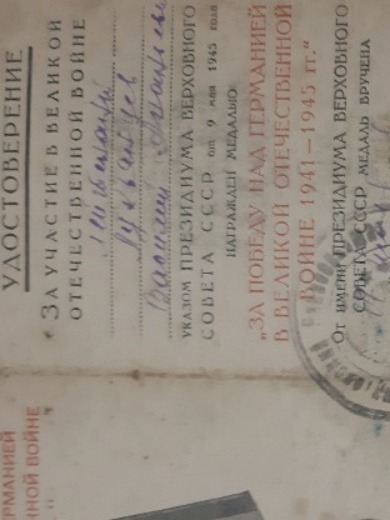 УДОСТОВЕРЕНИЕ
ЗА УЧАСТИЕ В ВЕЛИКОЙ
ОТЕЧЕСТВЕННОЙ ВОЙНЕ
УКАЗОМ ПРЕЗИДИУМА ВЕРХОВНОГО
СОВЕТА СССР от 9 мая 1945 года
НАГРАЖДЕН МЕДАЛЬЮ
„ЗА ПОБЕДУ НАД ГЕРМАНИЕЙ
В ВЕЛИКОЙ ОТЕЧЕСТВЕННОЙ
ВОЙНЕ 1941—1945 гг.“
ОТ ИМЕНИ ПРЕЗИДИУМА ВЕРХОВНОГО
СОВЕТА СССР МЕДАЛЬ ВРУЧЕНА
РМАНИЕЙ
НОЙ ВОЙНЕ